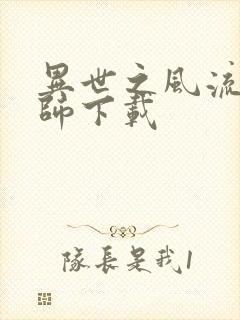 異世之風流
師下載
隊長是我1